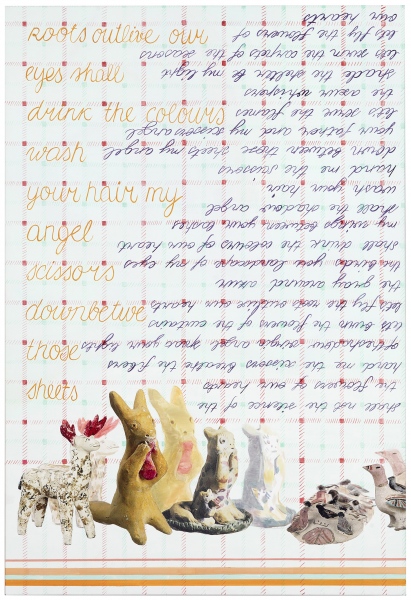 Roots outlive our
eyes shall
drink the colours
wash
your hair my
angel
scissors
downbetwe
those
sheets
shall not the silence of the
the flowers of our hearts
hand me the scissors breathe the
angel upon your lights
lets burn the flowers of the curtains
let fly the roots outlive our hearts
the gray around the
the birds you landscape of my eyes
shall drink the colours of our heart
my wings between your lashes
the shadow angel
wash your hair
hand me the scissors
down between those sheets my angel
your father and my scissors angel
lets the flames
the azur whispers
shade the shelter my light
lets swim the of the seasons
let fly the flowers of
our hearts